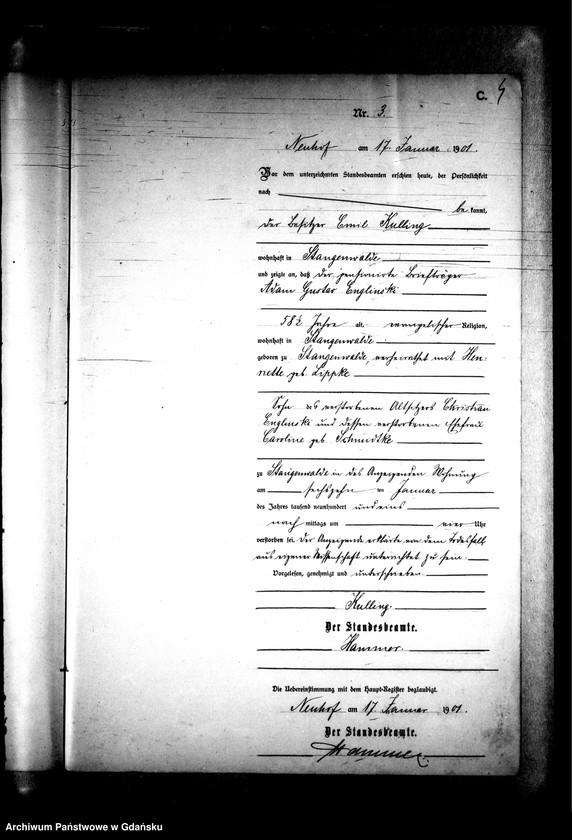 C. 4
Nr. 3.
Neuhof am 17. Januar 1901.
Vor dem unterzeichneten Standesbeamten erschien heute, der Persönlichkeit
nach
be kannt,
der Besitzer Emil Kulling
wohnhaft in Stangenwalde
und zeigte an, daß der pensionirte Briefträger
Adam Gustav Englinski
58½ Jahre alt, evangelischer Religion,
wohnhaft in Stangenwalde
geboren zu Stangenwalde, verheirathet mit Hen-
riette geb. Lippke
Sohn des verstorbenen Altsitzers Christian
Englinski und dessen verstorbenen Ehefrau
Caroline geb Schmidtke
zu Stangenwalde in des Anzeigenden Wohnung
am sechszehn ten Januar
des Jahres tausend neunhundert und eins
nach mittags um vier Uhr
verstorben sei. Der Anzeigende erklärte von dem Todesfall
aus eigener Wissenschaft unterrichtet zu sein.
Vorgelesen, genehmigt und unterschrieben.
Kulling.
Der Standesbeamte.
Hammer.
Die Uebereinstimmung mit dem Haupt-Register beglaubigt.
Neuhof am 17. Januar 1901.
Der Standesbeamte.
Hammer.
Archiwum Państwowe w Gdańsku